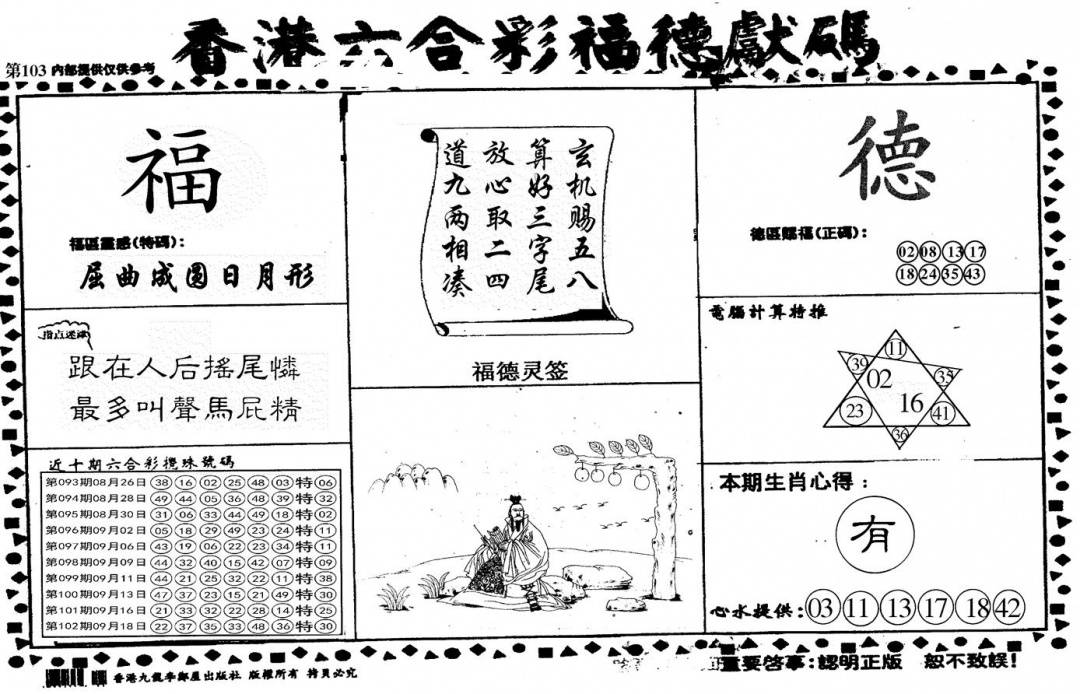 香港六合彩福德獻碼
第103 内部提供仅供参考
福
福區靈感(特碼):
屈曲成圆日月形
指点迷津
跟在人后搖尾憐
最多叫聲馬屁精
近十期六合彩攪珠號碼
第093期08月26日 38 16 02 25 48 03 特 06
第094期08月28日 49 44 05 36 48 39 特 32
第095期08月30日 31 06 33 44 49 18 特 02
第096期09月02日 05 18 29 49 23 24 特 11
第097期09月06日 43 19 06 22 23 34 特 11
第098期09月09日 44 32 40 15 42 07 特 09
第099期09月11日 44 21 25 32 22 11 特 38
第100期09月13日 47 37 23 15 21 49 特 30
第101期09月16日 21 33 32 22 28 14 特 25
第102期09月18日 22 37 35 33 48 36 特 30
玄机赐五八
算好三字尾
放心取二四
道九两相凑
福德灵签
德
德區賜福(正碼):
02 08 13 17
18 24 35 43
電腦計算特推
11
39 35
02
16
23 41
36
本期生肖心得:
有
心水提供: 03 11 13 17 18 42
香港九龍李鄭屋出版社 版權所有 拷貝必究
重要启事:認明正版 恕不致誤!